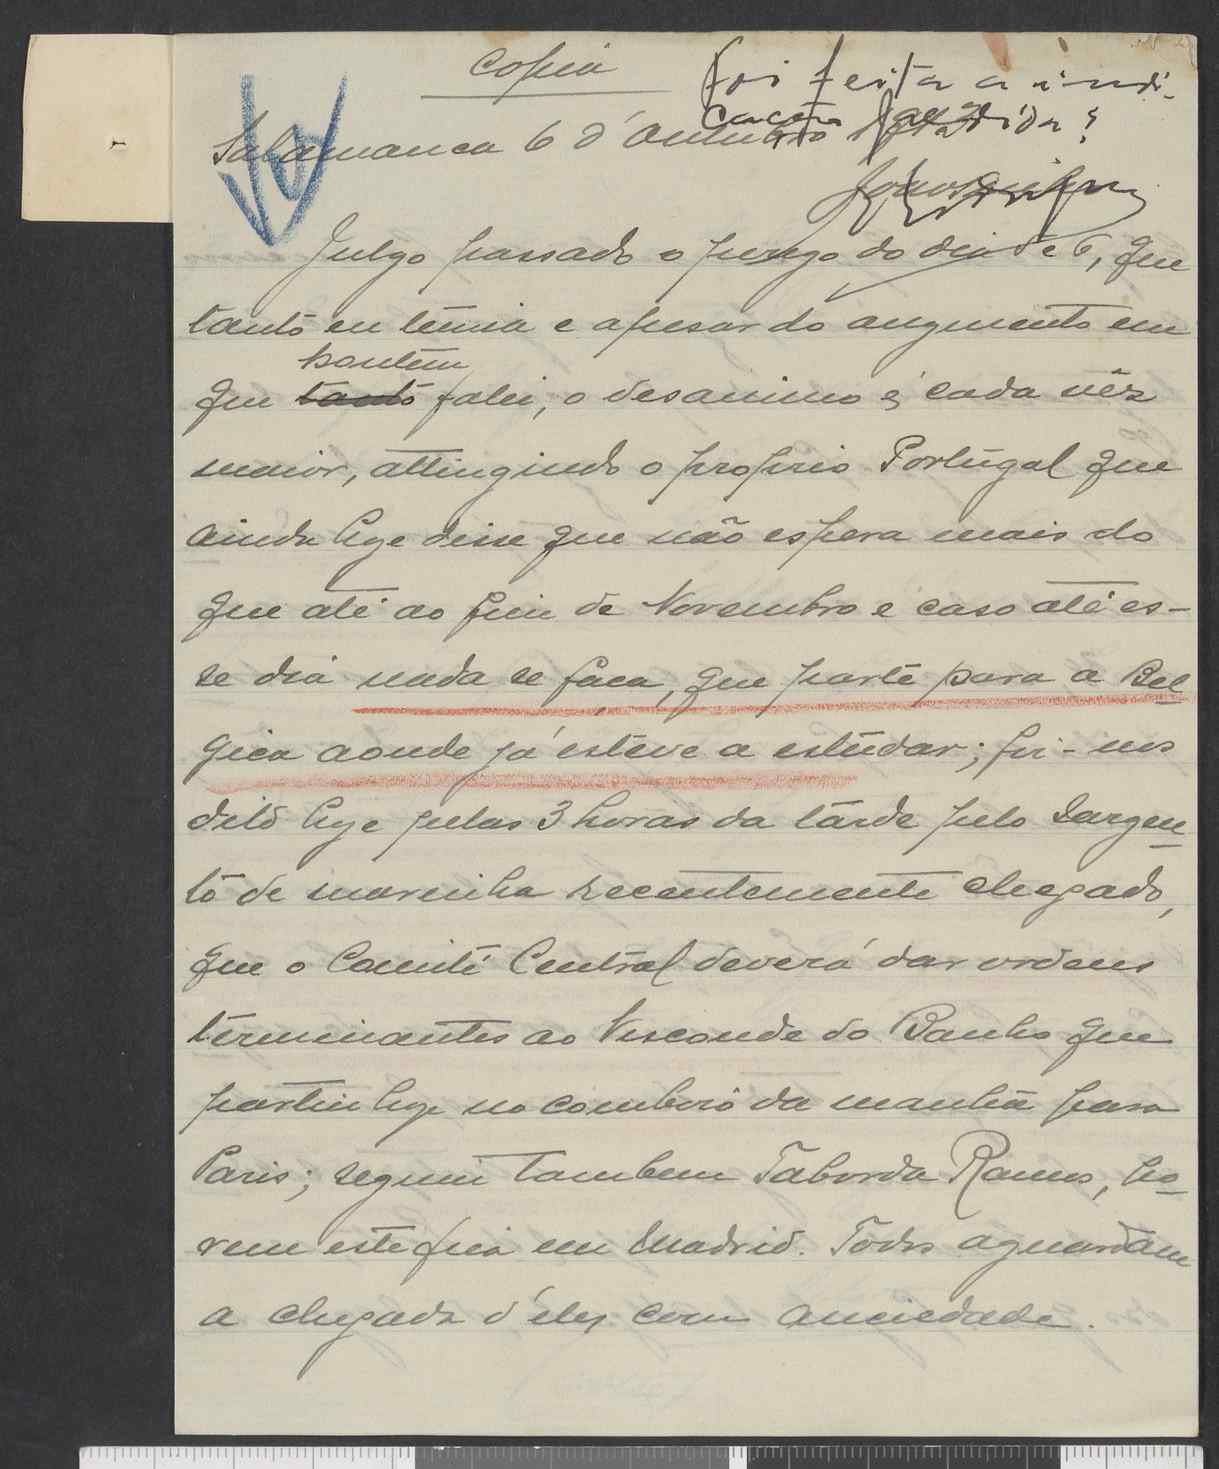 Copia
foi feita a indi-
cação pedida?
Salamanca 6 d'Outubro
Julgo passado o perigo do dia de 6, que
tanto eu temia e apesar do augmento em
que tanto hontem falei, o desanimo é cada vêz
maior, attingindo o proprio Portugal que
ainda hoje disse que não espera mais do
que até ao fim de Novembro e caso até es-
se dia nada se faça, que parte para a Bel
gica aonde já esteve a estudar; foi-nos
dito hoje pelas 3 horas da tarde pelo Sargen
to de marinha recentemente chegado,
que o Comité Central deverá dar ordens
terminantes ao Visconde do Banho que
partiu hoje no comboio da manhã para
Paris; seguiu tambem Taborda Ramos, po-
rem este fica em Madrid. Todos aguardam
a chegada d'eles com anciedade.